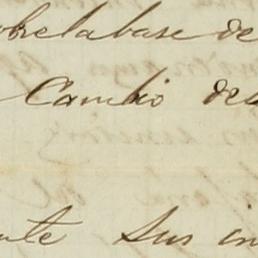 sobre la base de
Cambio des
nte sus in